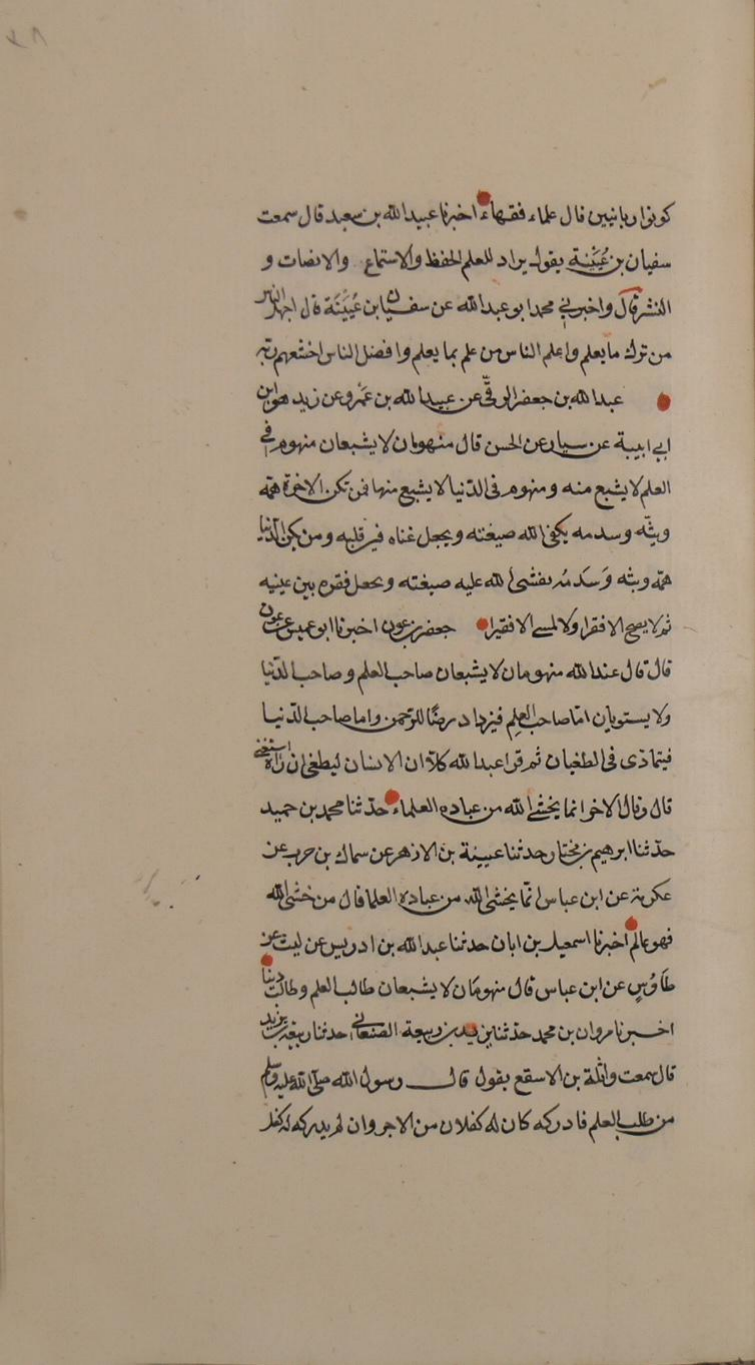 كونوا ربانيين قال علماء فقهاء اخبرنا عبيد الله بن سعيد قال سمعت
سفيان بن عُيَيْنة يقول يراد للعلم الحفظ والاستماع والانصات و
النشر قال واخبرني محمد ابو عبد الله عن سفيان بن عُيَيْنَة قال اجهل الناس
من ترك ما يعلم واعلم الناس من علم بما يعلم وافضل الناس اخشعهم
عبد الله بن جعفر الرقي عن عبيد الله بن عَمْرو عن زيد هو ابن
ابي انيسة عن سيار عن الحسن قال منهومان لا يشبعان منهوم في
العلم لا يشبع منه ومنهوم في الدّنيا لا يشبع منها فمن تكن الاخرة همّه
وبثّه وسدمه يكفي الله ضيعته ويجعل غناه في قلبه ومن تكن الدّنيا
همّه وبثه وَسَدَمُه يفشي الله عليه ضيعته ويجعل فقره بين عينيه
ثم لا يصبح الا فقيرا ولا يمسي الا فقيرا جعفر بن عون اخبرنا ابو عميس عن عون
قال قال عبد الله منهومان لا يشبعان صاحب العلم وصاحب الدّنيا
ولا يستويان امّا صاحب العلم فيزداد رضًا للرّحمن واما صاحب الدّنيا
فيتماذى في الطغيان ثم قرا عبد الله كلا ان الانسان ليطغى ان رآه استغنى
قال وقال الاخر انما يخشى الله من عباده العلماء حدّثنا محمد بن حميد
حدّثنا ابرهيم بن مختار حدثنا عيينة بن الازهر عن سماك بن حرب عن
عكرمة عن ابن عباس انّما يخشى الله من عباده العلما قال من خشى الله
فهو عالم اخبرنا اسمعيل بن ابان حدثنا عبد الله بن ادريس عن ليث عن
طَاوُسٍ عن ابن عباس قال منهومَان لا يشبعان طالب العلم وطالب دنيا
اخبرنا مروان بن محمد حدّثنا يزيد بن ربيعة الصنعاني حدثنا ربيعة بن يزيد
قال سمعت واثلة بن الاسقع يقول قال رسول الله صلى الله عليه وسلم
من طلب العلم فادركه كان له كفلان من الاجر وان لم يدركه له كفل